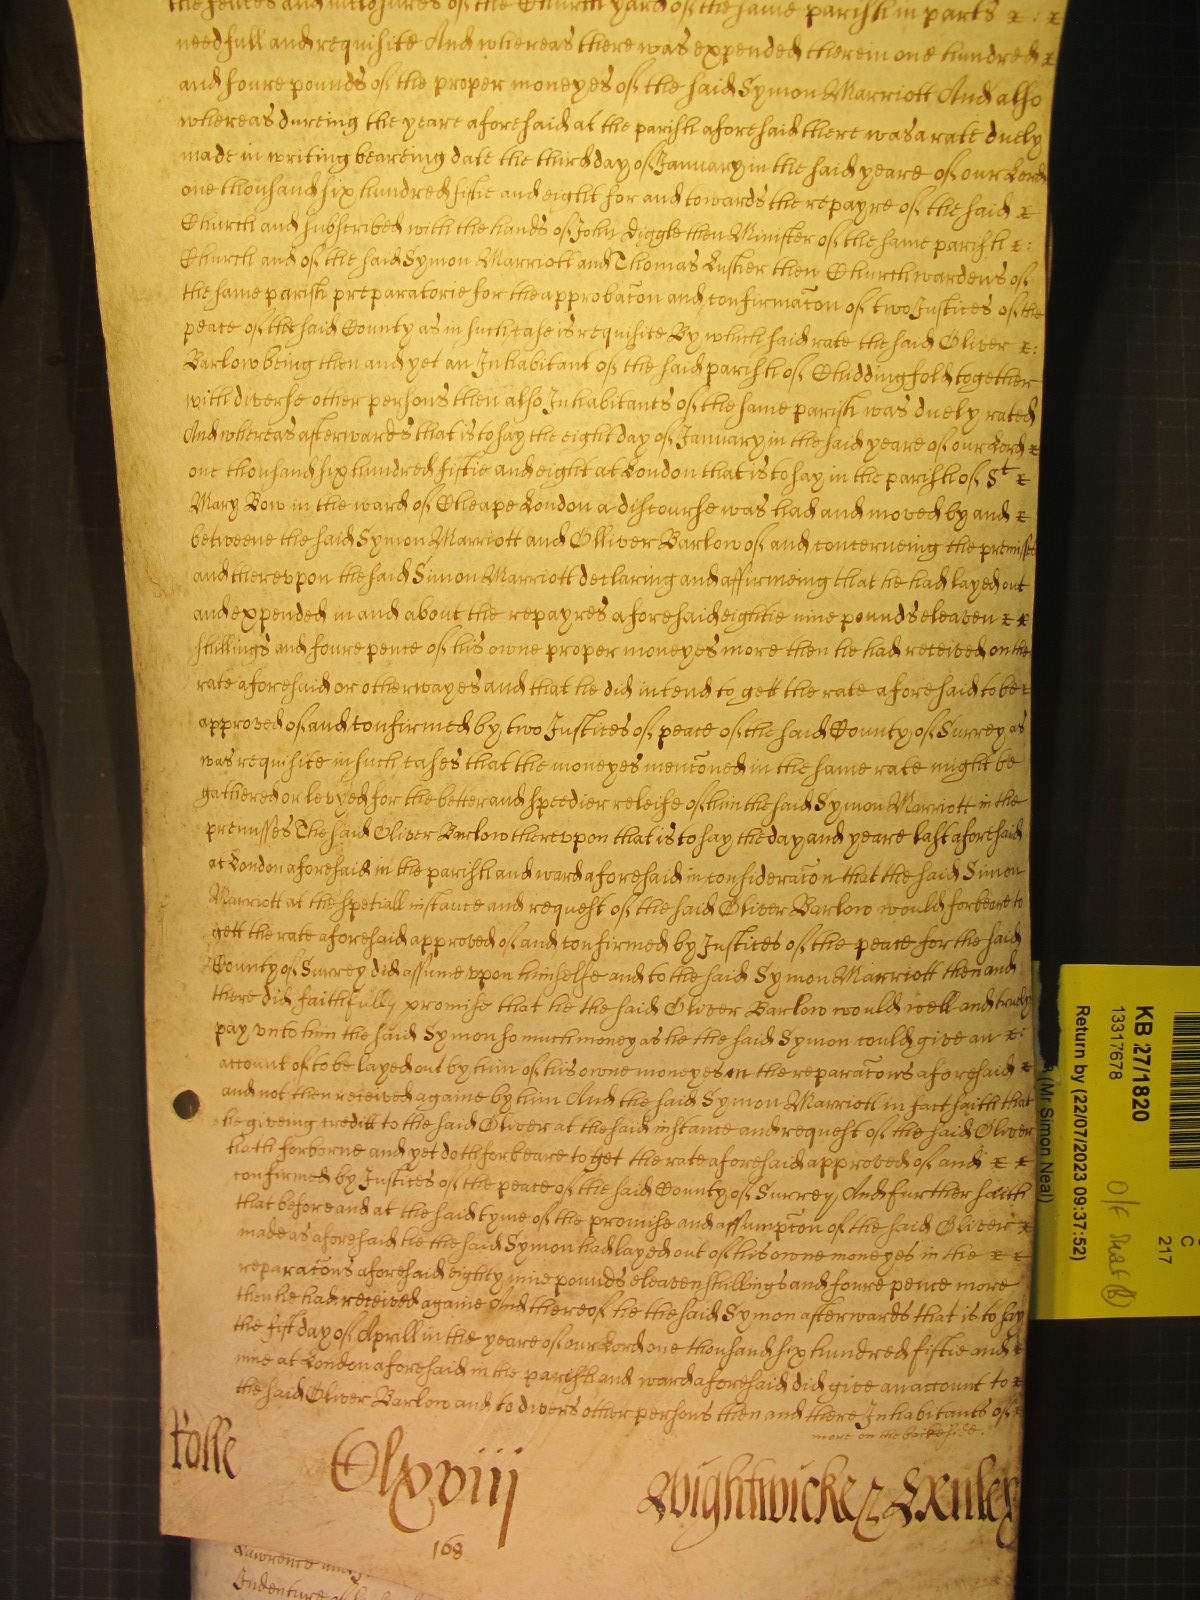 the fences and inclosures of the Church yard of the same parish in parts
needfull and requisite And whereas there was expended therein one hundred
and foure pounds of the proper moneyes of the said Symon Marriott And also
whereas dureing the yeare aforesaid at the parish aforesaid there was a rate duely
made in writing beareing date the third day of January in the said yeare of our Lord
one thousand six hundred fiftie and eight for and towards the repayre of the said
Church and subscribed with the hands of John Diggle then Minister of the same parish
Church and of the said Symon Marriott and Thomas Lusher then Churchwardens of
the same parish preparatorie for the approbacon and confirmacon of two Justices of the
peace of the said County as in such case is requisite By which said rate the said Oliver
Barlow being then and yet an Inhabitant of the said parish of Chiddingfold together
with diverse other persons then also Inhabitants of the same parish was duely rated
And whereas afterwards that is to say the eight day of January in the said yeare of our Lord
one thousand six hundred fiftie and eight at London that is to say in the parish of St
Mary Bow in the ward of Cheape London a discourse was had and moved by and
betweene the said Symon Marriott and Olliver Barlow of and concerneing the premisses
and therevpon the said Simon Marriott declaring and affirmeing that he had layed out
and expended in and about the repayres aforesaid eightie nine pounds eleaven
shillings and foure pence of his owne proper moneyes more then he had received on the
rate aforesaid or otherwayes and that he did intend to gett the rate aforesaid to be
approved of and confirmed by two Justices of peace of the said County of Surrey as
was requisite in such cases that the moneyes menconed in the same rate might be
gathered or levyed for the better and speedier releife of him the said Symon Marriott in the
premisses The said Oliver Barlow therevpon that is to say the day and yeare last aforesaid
at London aforesaid in the parish and ward aforesaid in consideracon that the said Simon
Marriott at the speciall instance and request of the said Oliver Barlow would forbeare to
gett the rate aforesaid approved of and confirmed by Justices of the peace for the said
County of Surrey did assume vpon himselfe and to the said Symon Marriott then and
there did faithfully promise that he the said Oliver Barlow would well and truely
pay vnto him the said Symon so much money as he the said Symon could give an
account of to be layed out by him of his owne moneyes in the reparacons aforesaid
and not then received againe by him And the said Symon Marriott in fact saith that
he giveing creditt to the said Oliver at the said instance and request of the said Oliver
hath forborne and yet doth forbeare to get the rate aforesaid approved of and
confirmed by Justices of the peace of the said County of Surrey And further saith
that before and at the said tyme of the promise and assumpcon of the said Oliver
made as aforesaid he the said Symon had layed out of his owne moneyes in the
reparacons aforesaid eighty nine pounds eleaven shillings and foure pence more
then he had received againe And thereof he the said Symon afterwards that is to say
the fist day of Aprill in the yeare of our Lord one thousand six hundred fiftie and
nine at London aforesaid in the parish and ward aforesaid did give an account to
the said Oliver Barlow and to divers other persons then and there Inhabitants of
more on the backside.
Rolle Clxviij Wightwicke &
168
Lawrence
Indenture of
KB 27/1820
13317678
Return by (22/07/2023 09:37:52)
(Mr Simon Neal)
C
217